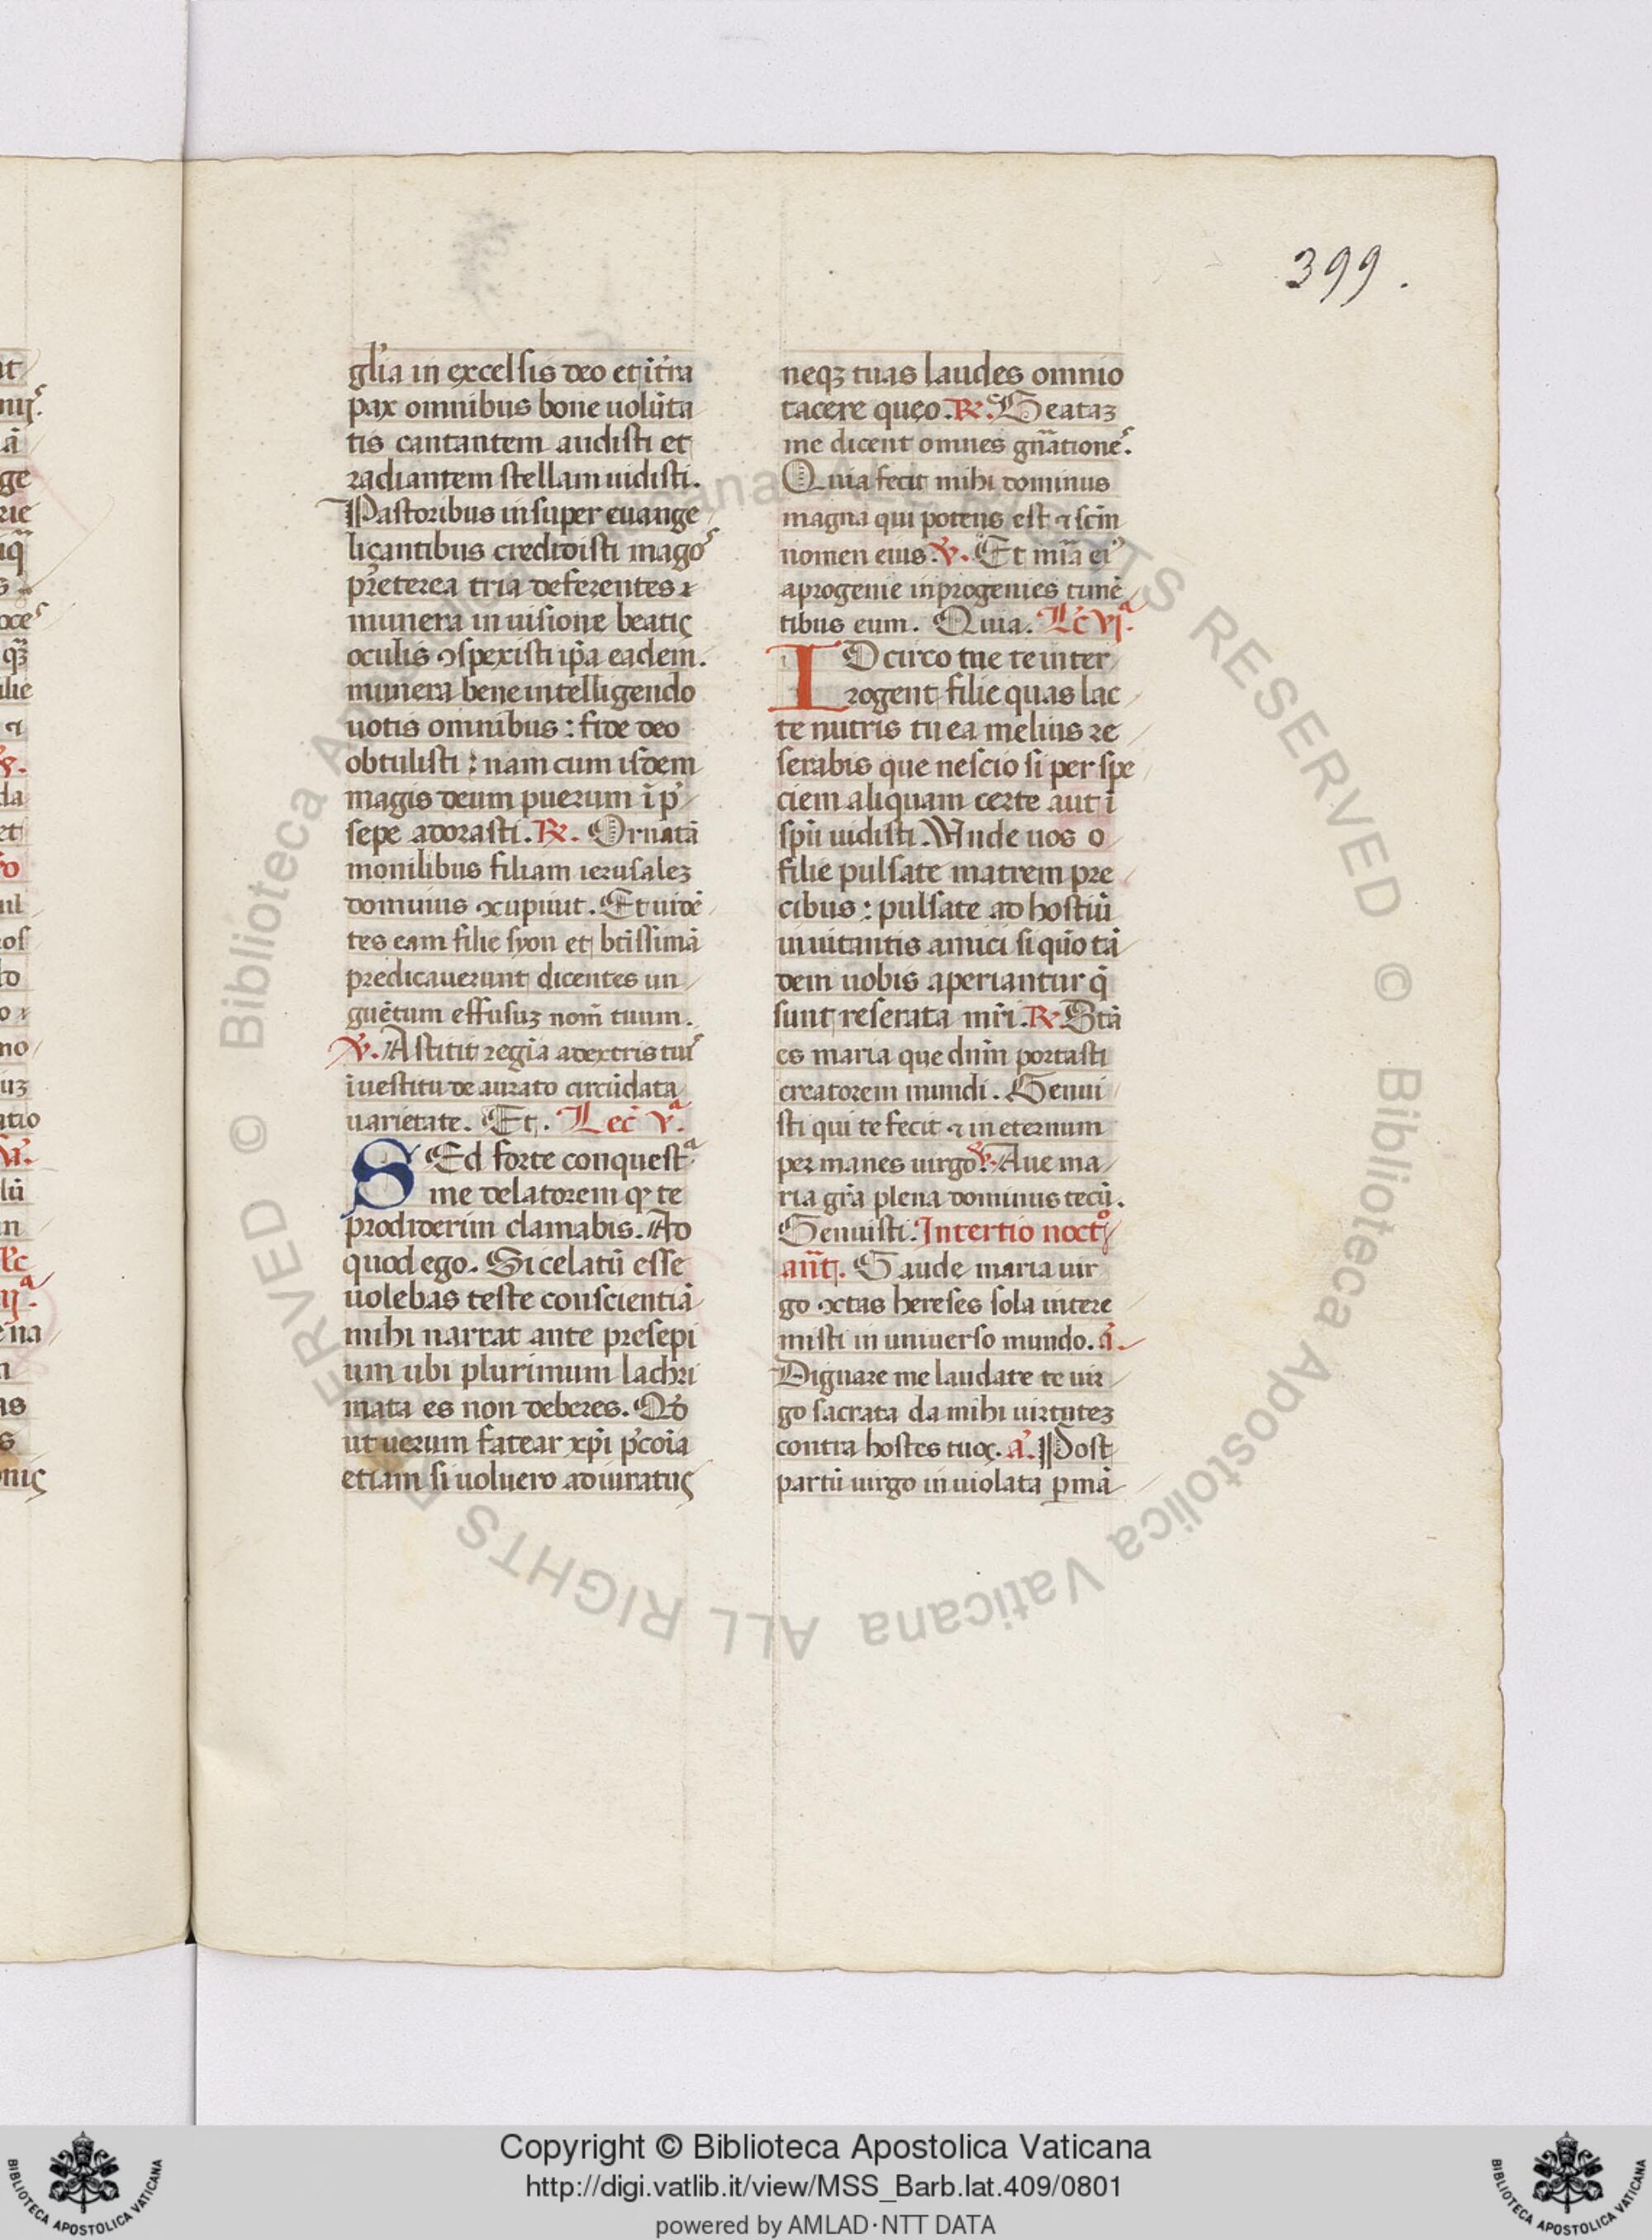 399.
gl'ia in excelsis deo et i t'ra
pax omnibus bone uolūta
tis cantantem audisti et
radiantem stellam uidisti.
Pastoribus insuper euange
liçantibus credidisti magos
pr̄eterea tria deferentes ⁊
munera in uisione beatiç
oculis ꝯspexisti ip̄a eadem.
munera bene intelligendo
uotis omnibus: fide deo
obtulisti: nam cum isdem
magis deum puerum ī p̄
sepe adorasti. ℟. Ornatā
monilibus filiam ierusaleꝫ
dominus ꝯcupiuit. Et uidē
tes eam filie syon et bt̄issimā
predicauerunt dicentes un
guētum effusuꝫ nom̄ tuum.
℣. Astitit regia adextris tuis
ī uestitu de aurato circūdata
uarietate. Et. Lec̄ vª.
SEd forte conquestª
me delatorem qꝫ te
prodiderim clamabis. Ad
quod ego. Si celatū esse
uolebas teste conscientiā
mihi narrat ante presepi
um ubi plurimum lachri
mata es non deberes. Qd̄
ut uerum fatear xp̄i p̄conia
etiam si uoluero adiuratuç
neqꝫ tuas laudes omnio
tacere queo. ℟. Beataꝫ
me dicent omnes gn̄ationes.
Quia fecit mihi dominus
magna qui potens est ⁊ scm̄
nomen eius. ℣. Et mīa eiꝰ
aprogenie inprogenies timē
tibus eum. Quia. Lc̄ vjª.
IDcirco tue te inter
rogent filie quas lac
te nutris tu ea melius re
serabis que nescio si per spe
ciem aliquam certe aut ī
spū uidisti. Unde uos o
filie pulsate matrem pre
cibus: pulsate ad hostiū
inuitantis amici si quo tā
dem uobis aperiantur q̄
sunt reserata mr̄i. ℟. Btā
es maria que dnm̄ portasti
creatorem mundi. Genui
sti qui te fecit ⁊ in eternum
permanes uirgo. ℣. Aue ma
ria gr̄a plena dominus tecū.
Genuisti. In tertio noctº
an̄t. Gaude maria uir
go ꝯctas hereses sola intere
misti in uniuerso mundo. ā.
Dignare me laudare te uir
go sacrata da mihi uirtuteꝫ
contra hostes tuoç. ā. Post
partū uirgo inuiolata ꝑmā
Copyright © Biblioteca Apostolica Vaticana
http://digi.vatlib.it/view/MSS_Barb.lat.409/0801
powered by AMLAD·NTT DATA